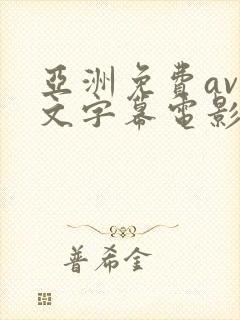 亞洲免費av
文字幕電影
普希金